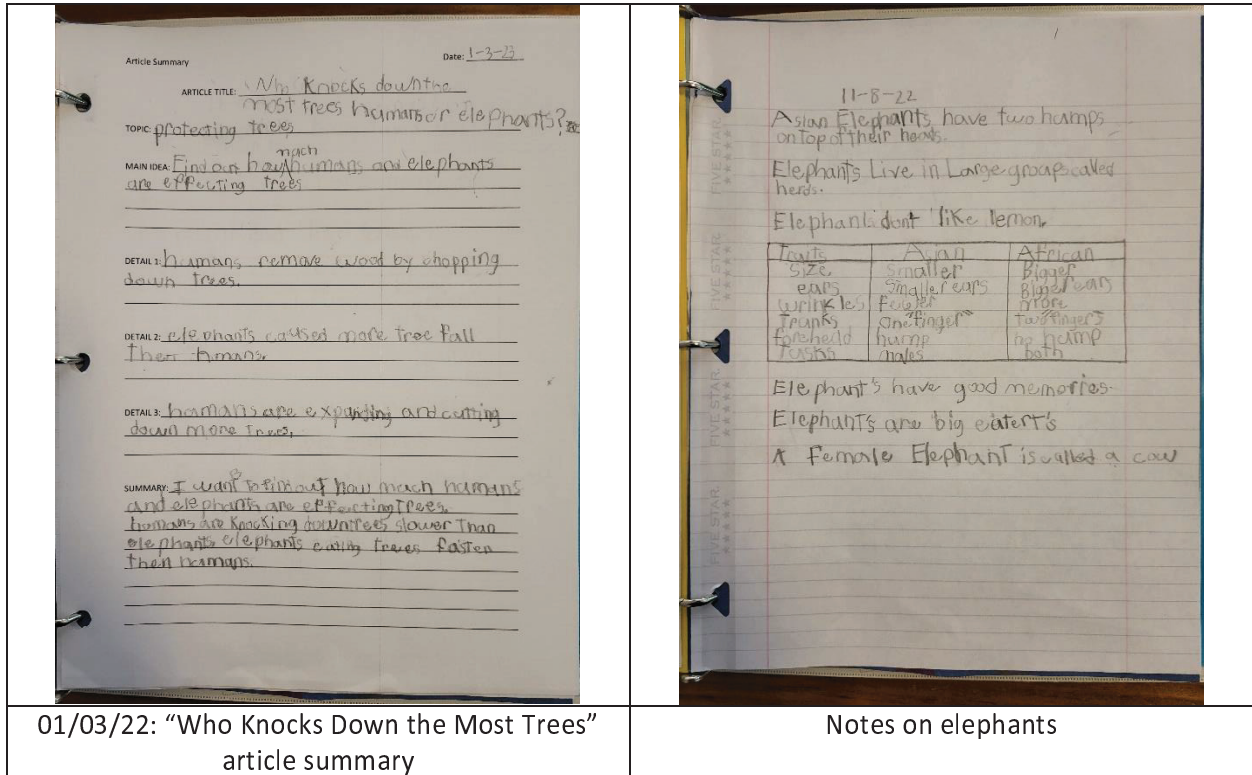 Article Summary
Date: 1-3-23
ARTICLE TITLE: Who Knocks down the
most trees humans or elephants?
TOPIC: protecting trees
mach
MAIN IDEA: Find out how humans and elephants
are effecting trees
DETAIL 1: humans remove wood by chopping
down trees.
DETAIL 2: elephants caused more tree fall
then humans.
DETAIL 3: humans are expanding and cutting
down more trees.
SUMMARY: I want to find out how mach humans
and elephants are effecting trees.
humans are knocking down trees slower Than
elephants elephants trees faster
then humans.
01/03/22: “Who Knocks Down the Most Trees”
article summary
11-8-22
Asian Elephants have two humps
on top of their heads.
Elephants Live in Large groups called
herds.
Elephants dont like lemon.
Traits Asian African
Size Smaller Bigger
ears Smaller ears Bigger ears
wrinkles fewer more
Trunks one "finger" two "fingers"
forehead hump no hump
Tusks males both
Elephant's have good memories.
Elephant's are big eatert's
A female Elephant is called a cow
FIVE STAR.
FIVE STAR.
FIVE STAR.
FIVE STAR.
Notes on elephants